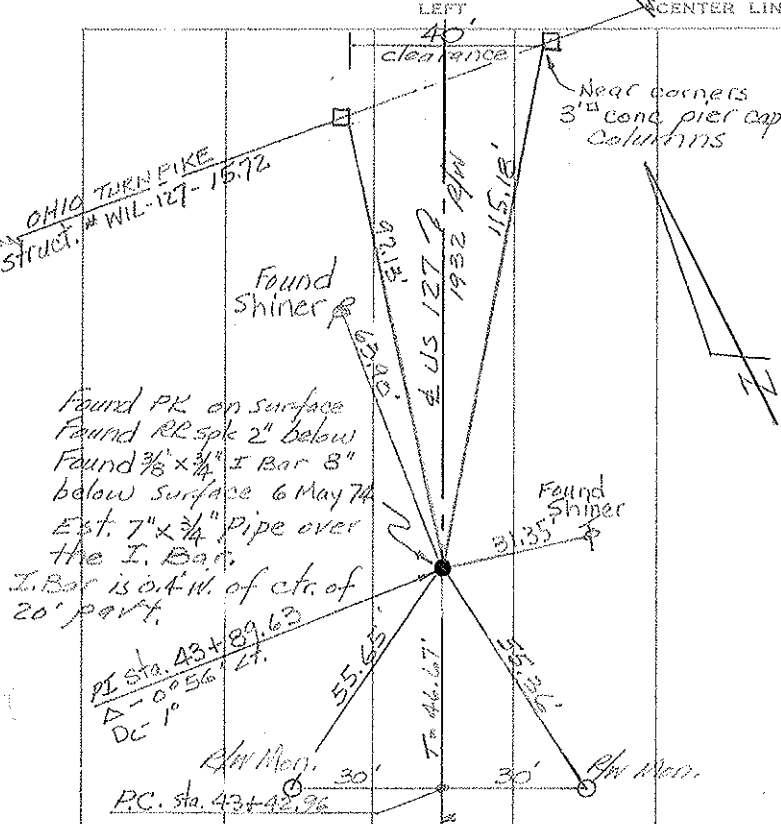 LEFT
CENTER LIN
40'
clearance
Near corners
3'□ conc pier cap
Columns
OHIO TURNPIKE
Struct. # WIL-127-15.72
92.13'
℄ US 127
1932 R/W
115.18'
Found
Shiner
63.90'
Found PK on surface
Found RR spk 2" below
Found 3/8 x 3/4" I Bar 8"
below surface 6 May 74
Est. 7" x 3/4" Pipe over
the I. Bar.
I. Bar is 0.4' W. of ctr. of
20' pav't.
Found
Shiner
31.35'
N
PI sta. 43+89.63
Δ - 0° 56' Lt.
Dc - 1°
55.65'
T = 46.67'
55.36'
R/W Mon.
30'
30'
R/W Mon.
P.C. sta. 43+42.96